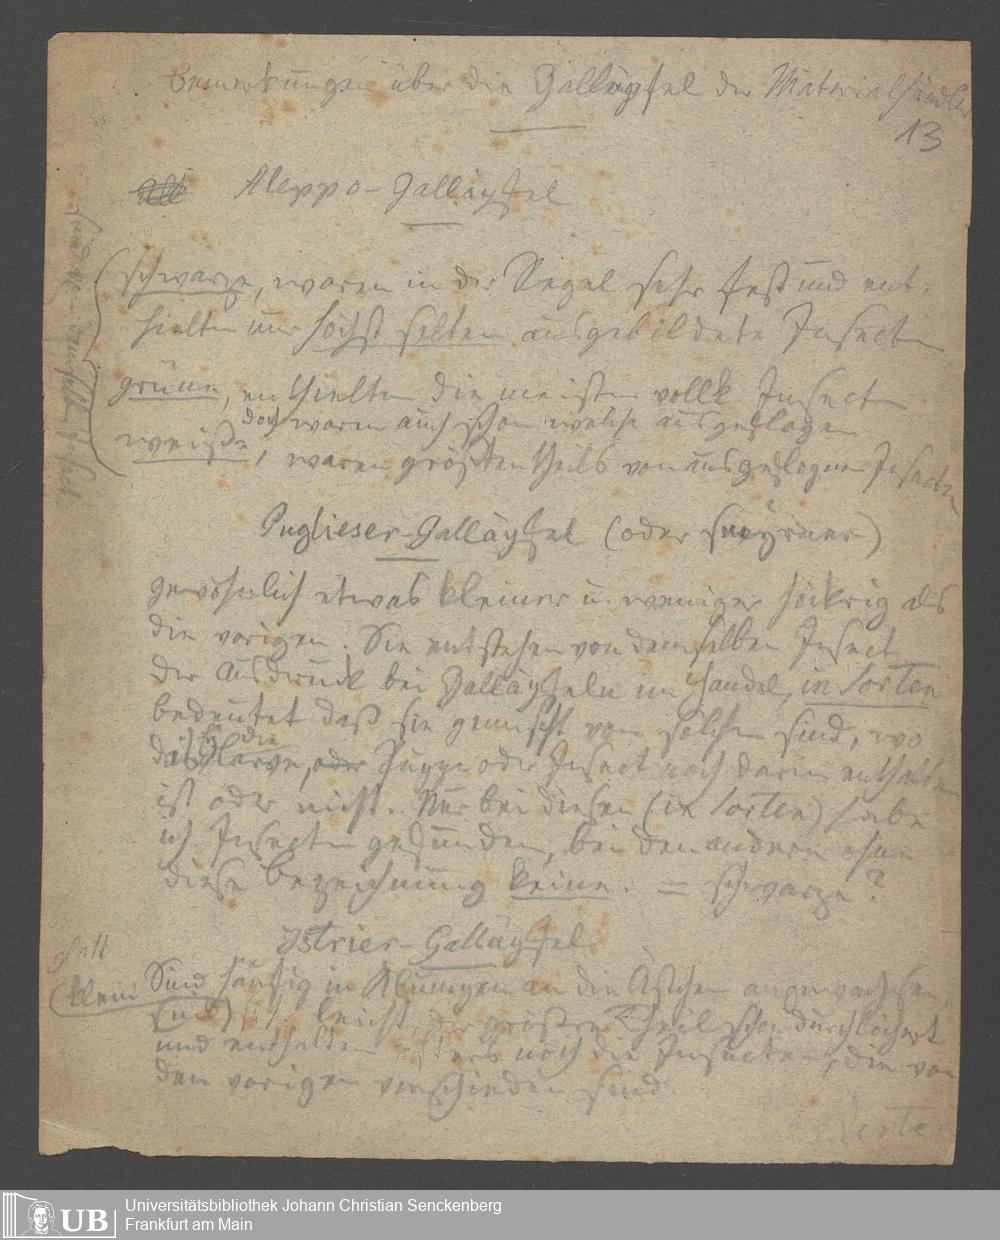 Bemerkungen über die Galläpfel der Materialhändler
13
Aleppo-Galläpfel
schwarze, waren in der Regel sehr fest und ent-
hielten nur höchst selten ausgebildete Insecten
grüne, enthielten die meisten vollk Insecten
doch waren auch schon welche ausgeflogen
weiße, waren größtentheils von ausgeflognen Insecten
Puglieser-Galläpfel (oder Smyrner)
gewöhnlich etwas kleiner u. weniger höckrig als
die vorigen. Sie entstehen von demselben Insect
Der Ausdruck bei Galläpfeln im Handel, in Sorten
bedeutet daß sie gemischt von solchen sind, wo
die Larve, oder Puppe oder Insect noch darin enthalten
ist oder nicht. Nur bei diesen (in Sorten) habe
ich Insecten gefunden, bei den andern ohne
diese Bezeichnung keine. = schwarze?
Istrier-Galläpfel
glatt
klein
Sind häufig in Klumpen an die Ästchen angewachsen,
sind leicht, der größere Theil schon durchlöchert
und enthalten öfters noch die Insecten, die von
den vorigen verschieden sind
Universitätsbibliothek Johann Christian Senckenberg
Frankfurt am Main
UB